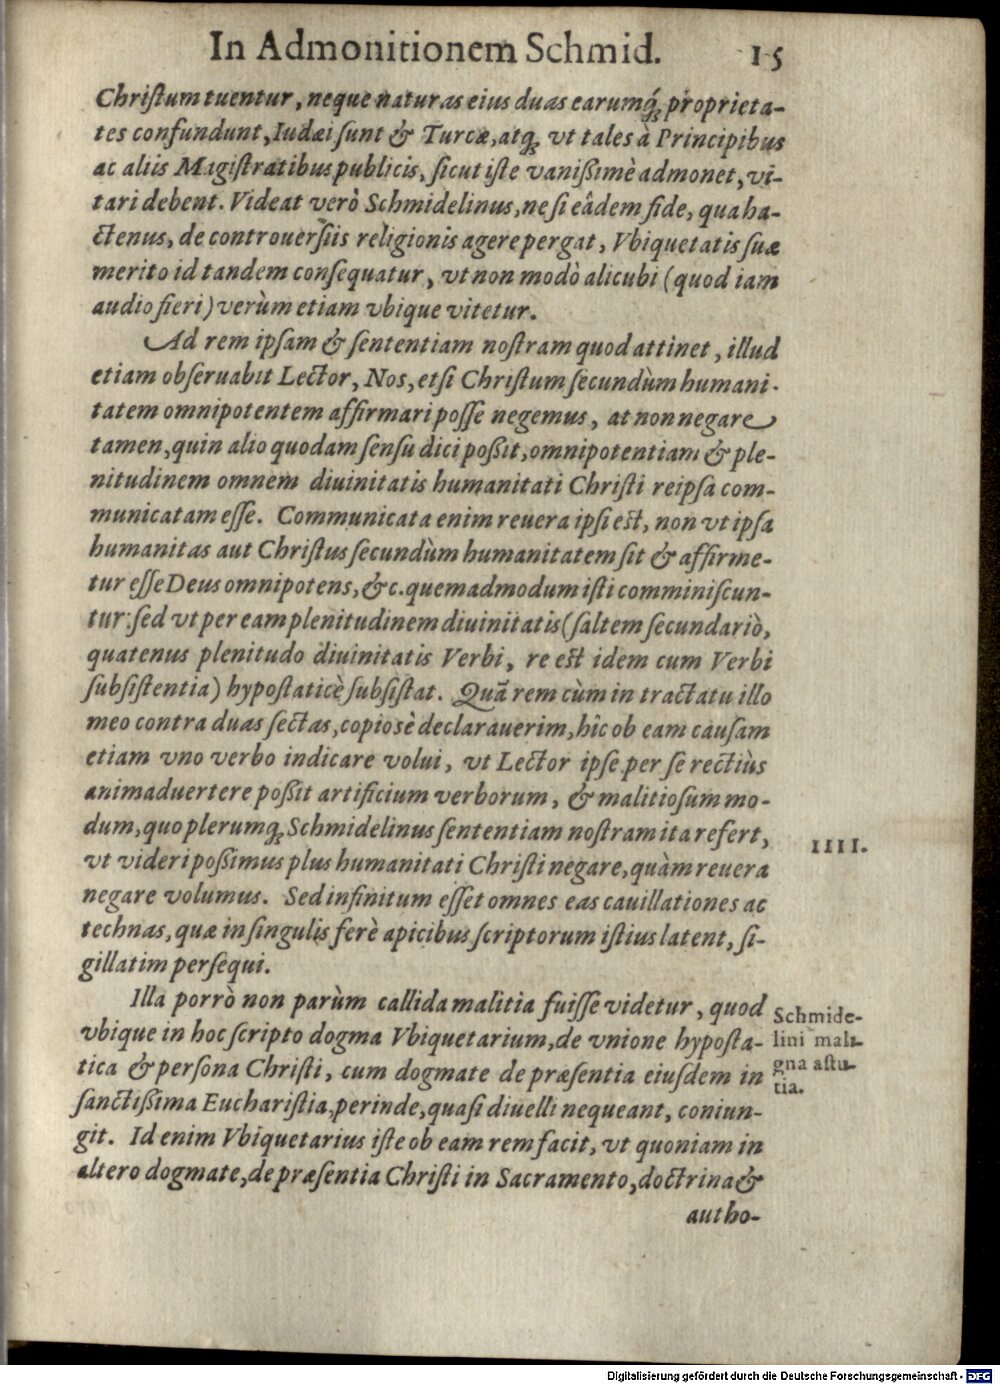 In Admonitionem Schmid. 15
Chriſtum tuentur, neque naturas eius duas earumq́; proprieta-
tes confundunt, Iudæi ſunt & Turcæ, atq; vt tales à Principibus
ac aliis Magiſtratibus publicis, ſicut iſte vaniſſimè admonet, vi-
tari debent. Videat verò Schmidelinus, ne ſi eâdem fide, qua ha-
ctenus, de controuerſiis religionis agere pergat, Vbiquetatis ſuæ
merito id tandem conſequatur, vt non modò alicubi (quod iam
audio fieri) verùm etiam vbique vitetur.
Ad rem ipſam & ſententiam noſtram quod attinet, illud
etiam obſeruabit Lector, Nos, etſi Chriſtum ſecundùm humani-
tatem omnipotentem affirmari poſſe negemus, at non negare
tamen, quin alio quodam ſenſu dici poßit, omnipotentiam & ple-
nitudinem omnem diuinitatis humanitati Chriſti reipſa com-
municatam eſſe. Communicata enim reuera ipſi est, non vt ipſa
humanitas aut Chriſtus ſecundùm humanitatem ſit & affirme-
tur eſſe Deus omnipotens, &c. quemadmodum iſti comminiſcun-
tur: ſed vt per eam plenitudinem diuinitatis (ſaltem ſecundariò,
quatenus plenitudo diuinitatis Verbi, re est idem cum Verbi
ſubſiſtentia) hypoſtaticè ſubſiſtat. Quā rem cùm in tractatu illo
meo contra duas ſectas, copiosè declarauerim, hîc ob eam cauſam
etiam vno verbo indicare volui, vt Lector ipſe per ſe rectiùs
animaduertere poßit artificium verborum, & malitioſum mo-
dum, quo plerumq; Schmidelinus ſententiam noſtram ita refert,
IIII.
vt videri poßimus plus humanitati Chriſti negare, quàm reuera
negare volumus. Sed infinitum eſſet omnes eas cauillationes ac
technas, quæ in ſingulis ferè apicibus ſcriptorum iſtius latent, ſi-
gillatim perſequi.
Illa porrò non parùm callida malitia fuiſſe videtur, quod
vbique in hoc ſcripto dogma Vbiquetarium, de vnione hypoſta-
tica & perſona Chriſti, cum dogmate de præſentia eiuſdem in
ſanctißima Euchariſtia, perinde, quaſi diuelli nequeant, coniun-
git. Id enim Vbiquetarius iſte ob eam rem facit, vt quoniam in
altero dogmate, de præſentia Chriſti in Sacramento, doctrina &
autho-
Schmide-
lini mali-
gna aſtu-
tia.
Digitalisierung gefördert durch die Deutsche Forschungsgemeinschaft - DFG